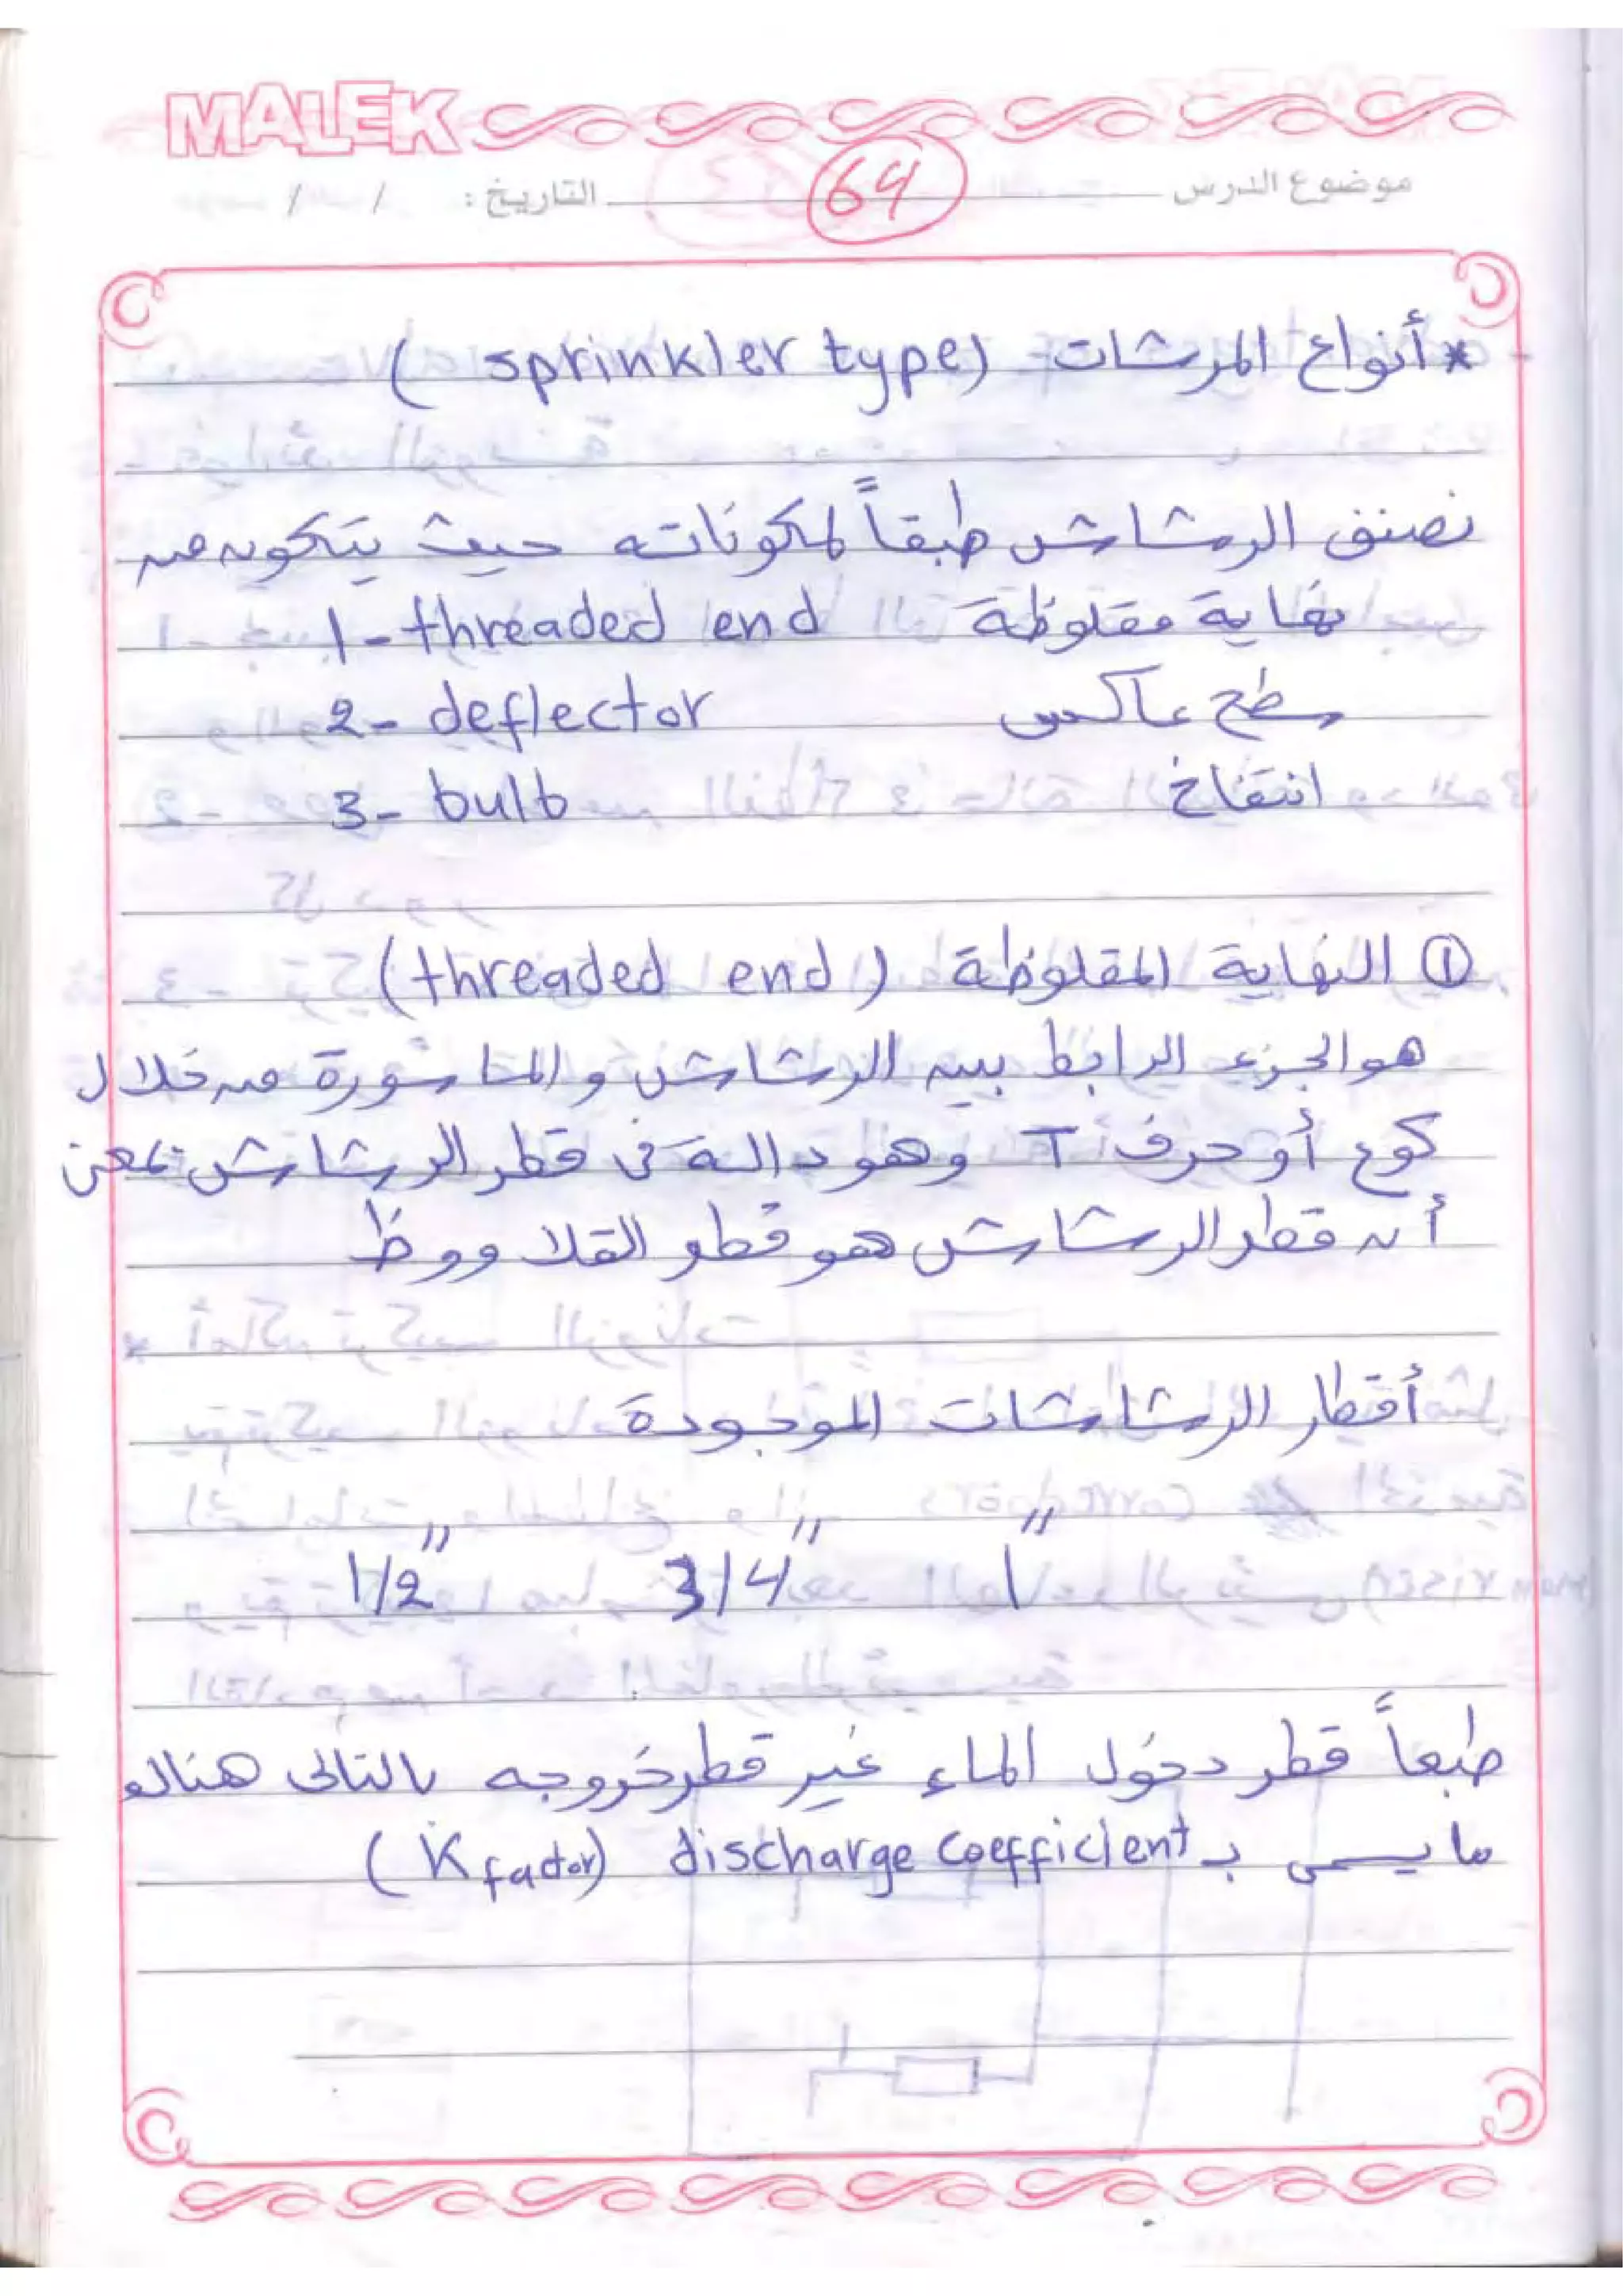 MALEK
موضوع الدرس 64 التاريخ: / /
* أنواع المرشات (sprinkler type)
نصنف الرشاش طبقاً لمكوناته حيث يتكون من
1- threaded end نهاية مقلوظة
2- deflector سطح عاكس
3- bulb انتفاخ
① النهاية المقلوظة (threaded end)
هو الجزء الرابط بين الرشاش و الماسورة من خلال
كوع أو حرف T وهو دالة فى قطر الرشاش بمعنى
أن قطر الرشاش هو قطر القلاووظ
أقطار الرشاشات الموجودة
1/2" 3/4" 1"
طبعاً قطر دخول الماء غير قطر خروجه بالتالى هناك
ما يسمى بـ discharge coefficient (K factor)